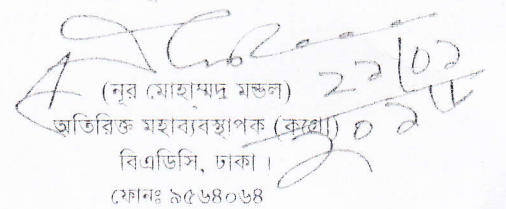 (নূর মোহাম্মদ মন্ডল)
অতিরিক্ত মহাব্যবস্থাপক (কগ্রো)
বিএডিসি, ঢাকা ।
ফোনঃ ৯৫৬৪০৬৪